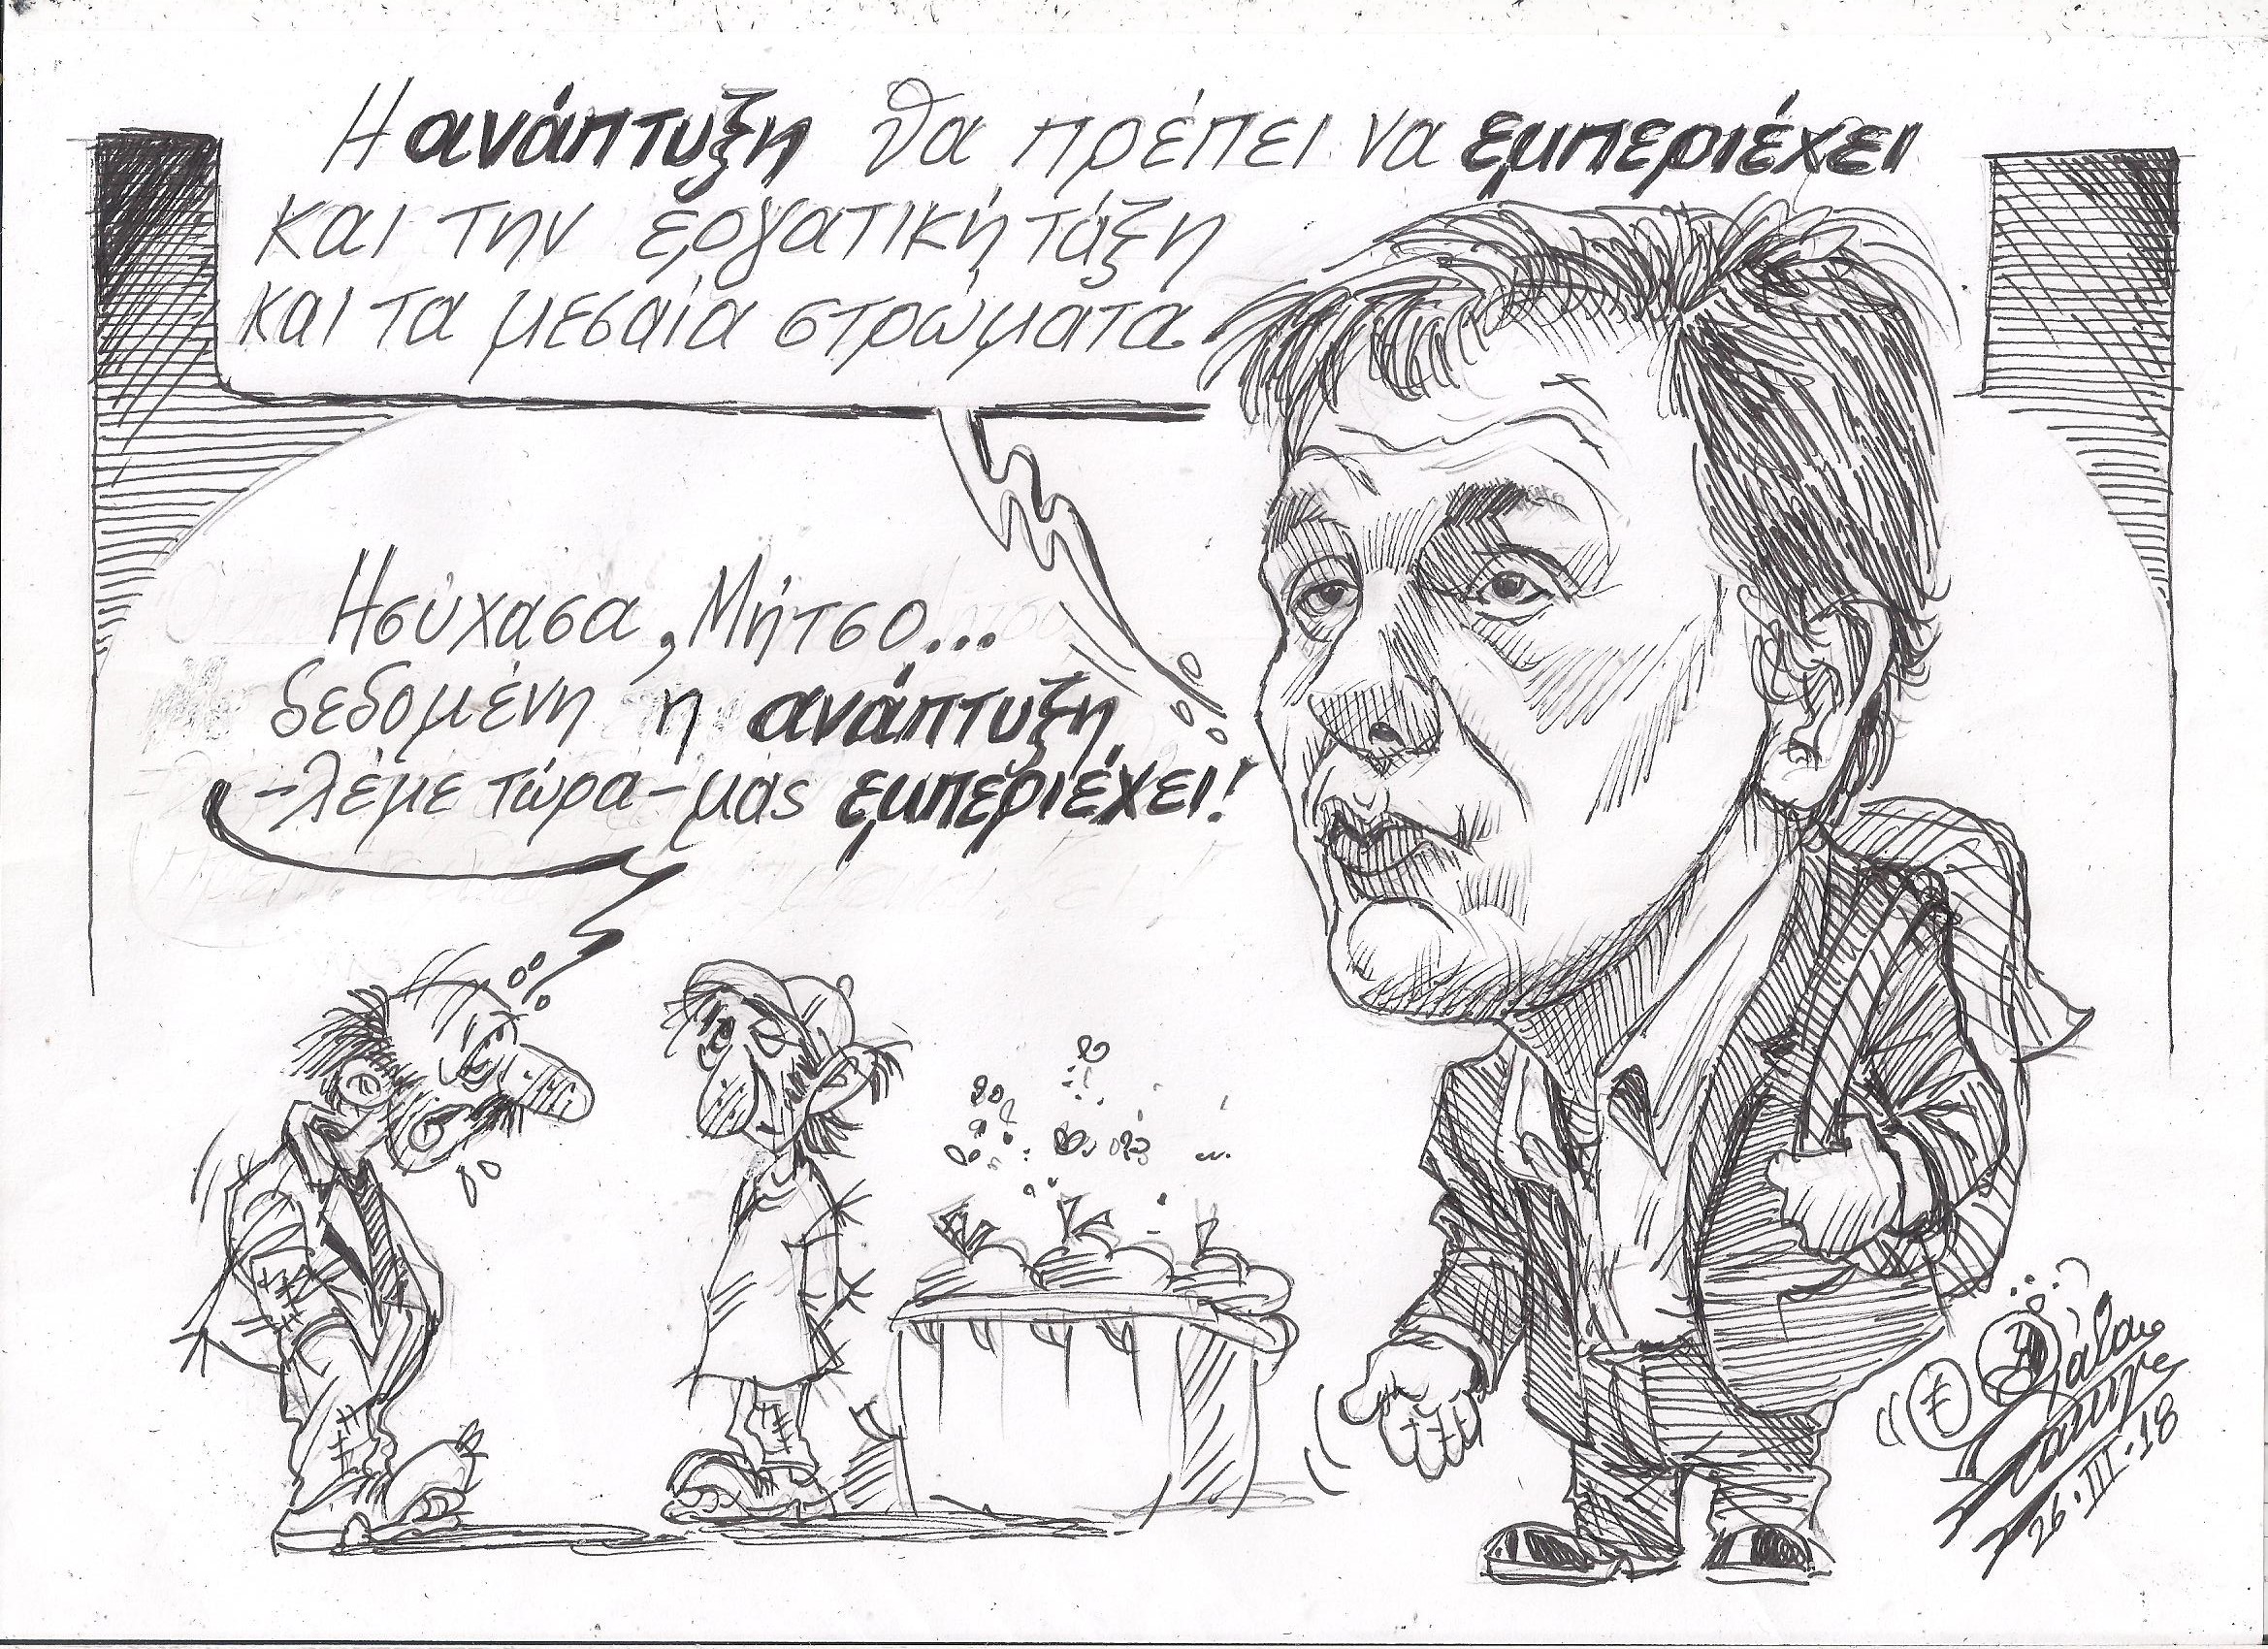 Η ανάπτυξη θα πρέπει να εμπεριέχει
και την εργατική τάξη
και τα μεσαία στρώματα
Ησύχασα, Μήτσο...
δεδομένη η ανάπτυξη
-λέμε τώρα-μας εμπεριέχει!
26·III·18